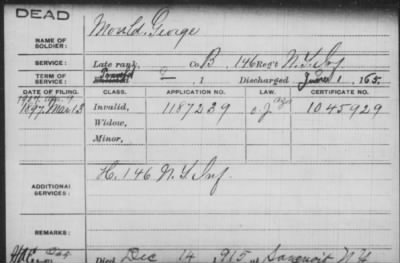 DEAD
NAME OF SOLDIER: Mould, George
SERVICE: Late rank, Co B, 146 Reg't N.Y. Inf
TERM OF SERVICE: Enrolled , 1 Discharged June 1, 1865.
DATE OF FILING. CLASS. APPLICATION NO. LAW. CERTIFICATE NO.
1897 Mar 13 Invalid, 1187239 1045929
Widow,
Minor,
ADDITIONAL SERVICES: H. 146 N.Y. Inf.
REMARKS:
Died Dec 14 1915, at